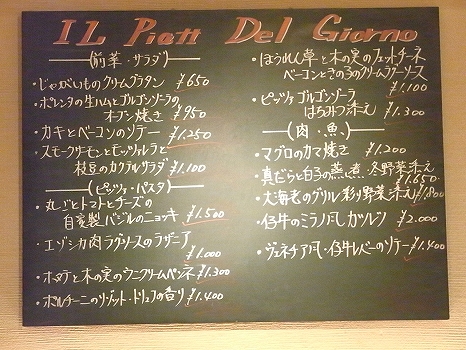 IL Piatt Del Giorno
(前菜・サラダ)
・じゃがいものクリームグラタン ¥650
・ポレンタの生ハムとゴルゴンゾーラの
オーブン焼き ¥950
・カキとベーコンのソテー ¥1.250
・スモークサーモンとモッツァレラと
枝豆のカクテルサラダ ¥1.100
(ピッツァ・パスタ)
・丸ごとトマトとチーズの
自家製バジルのニョッキ ¥1.500
・エゾシカ肉ラグソースのラザニア
¥1.000
・ホタテと木の実のウニクリームペンネ ¥1.300
・ポルチーニのリゾット・トリュフの香り ¥1.400
・ほうれん草と木の実のフェットチーネ
ベーコンときの子のクリームソース
¥1.100
・ピッツァ ゴルゴンゾーラ
はちみつ添え ¥1.300
(肉・魚)
・マグロのカマ焼き ¥1.200
・真だらと白子の蒸し煮 冬野菜添え
¥1.650
・大海老のグリル 彩り野菜添え ¥1.800
・仔牛のミラノ風カツレツ ¥2.000
・ヴェネチア風・仔牛レバーのソテー ¥1.400